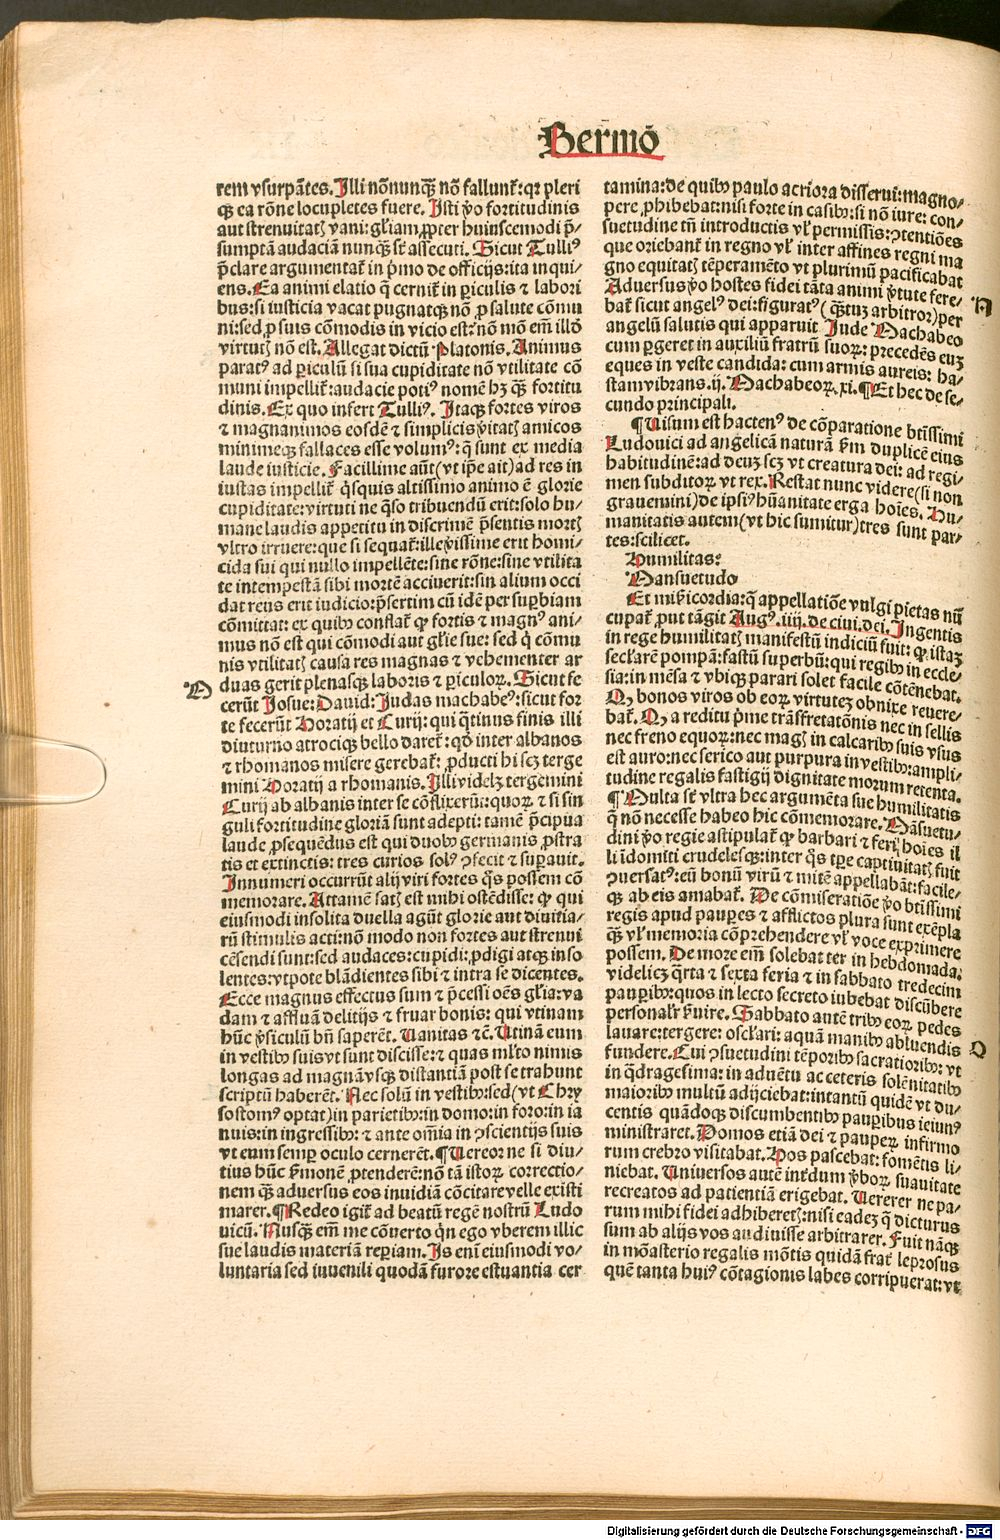 Sermō
rem vsurpātes. Illi nōnunqȝ nō fallunt̄: qꝛ pleri
qꝫ ea rōne locupletes fuere. Isti ꝟo fortitudinis
aut strenuitatꝭ vani: gl̄iam ꝓpter huiuscemodi p̄⸗
sumptā audaciā nunqȝ st̄ assecuti. Sicut Tulliꝰ
p̄clare argumentat̄ in pͥmo de officijs: ita inqui⸗
ens. Ea animi elatio q̄ cernit̄ in ꝑiculis ⁊ labori
bus: si iusticia vacat pugnatqꝫ nō ꝓ salute cōmu
ni: sed ꝓ suis cōmodis in vicio est: nō mō em̄ illd̓
virtutꝭ nō est. Allegat dictū Platonis. Animus
paratꝰ ad ꝑiculū si sua cupiditate nō vtilitate cō
muni impellit̄: audacie potiꝰ nomē hȝ qȝ fortitu
dinis. Ex quo infert Tulliꝰ. Itaqꝫ fortes viros
⁊ magnanimos eosdē ⁊ simplicis ꝟitatꝭ amicos
minimeqꝫ fallaces esse volumꝰ: q̄ sunt ex media
laude iusticie. Facillime aūt (vt ip̄e ait) ad res in
iustas impellit̄ qͥsquis altissimo animo ē glorie
cupiditate: virtuti ne qͥso tribuendū erit: solo hu⸗
mane laudis appetitu in discrimē p̄sentis mortꝭ
vltro irruere: que si sequat̄: ille ꝟissime erit homi⸗
cida sui qui nullo impellēte: sine rōne: sine vtilita
te intempestā sibi mortē acciuerit: sin alium occi
dat reus erit iudicio: p̄sertim cū idē per suꝑbiam
cōmittat: ex quibꝰ conflat̄ ꝙ fortis ⁊ magnꝰ ani⸗
mus nō est qui cōmodi aut gl̄ie sue: sed qͥ cōmu
nis vtilitatꝭ causa res magnas ⁊ vehementer ar
duas gerit plenasqꝫ laboris ⁊ ꝑiculoꝝ. Sicut fe
O
cerūt Josue: Dauid: Judas machabeꝰ: sicut for
te fecerūt Horatij et Curij: qui qͣtinus finis illi
diuturno atrociqꝫ bello daret̄: qd̓ inter albanos
⁊ rhomanos misere gerebat̄: ꝓducti hi scȝ terge
mini Horatij a rhomanis. Illi videlȝ tergemini
Curij ab albanis inter se cōflixerūt: quoꝝ ⁊ si sin
guli fortitudine gloriā sunt adepti: tamē p̄cipua
laude ꝓsequēdus est qui duobꝰ germanis ꝓstra
tis et extinctis: tres curios solꝰ ꝯfecit ⁊ suꝑauit.
Innumeri occurrūt alij viri fortes qͦs possem cō
memorare. Attamē satꝭ est mihi ostēdisse: ꝙ qui
eiusmodi insolita duella agūt glorie aut diuitia⸗
rū stimulis acti: nō modo non fortes aut strenui
cēsendi sunt: sed audaces: cupidi: ꝓdigi atqꝫ inso
lentes: vtpote blādientes sibi ⁊ intra se dicentes.
Ecce magnus effectus sum ⁊ p̄cessi oēs gl̄ia: va
dam ⁊ affluā delitijs ⁊ fruar bonis: qui vtinam
hūc ꝟsiculū bn̄ saperēt. Uanitas ⁊c̄. Utinā eum
in vestibꝰ suis vt sunt discisse: ⁊ quas ml̓to nimis
longas ad magnā vsqꝫ distantiā post se trahunt
scriptū haberēt. Nec solū in vestibꝰ: sed (vt Chry
sostomꝰ optat) in parietibꝰ: in domo: in foro: in ia
nuis: in ingressibꝰ: ⁊ ante om̄ia in ꝯscientijs suis
vt eum semꝑ oculo cernerēt. ¶ Uereor ne si diu⸗
tius hūc ẜmonē ꝓtenderē: nō tā istoꝝ correctio⸗
nem qȝ aduersus eos inuidiā cōcitare velle existi
marer. ¶ Redeo igit̄ ad beatū regē nostrū Ludo
uicū. Nusqȝ em̄ me cōuerto qͥn ego vberem illic
sue laudis materiā reꝑiam. Is eni eiusmodi vo⸗
luntaria sed iuuenili quodā furore estuantia cer
tamina: de quibꝰ paulo acriora disserui: magno⸗
pere ꝓhibebat: nisi forte in casibꝰ: si nō iure: con⸗
suetudine tn̄ introductis vl̓ permissis: ꝯtentiōes
que oriebant̄ in regno vl̓ inter affines regni ma
gno equitatꝭ tēperamēto vt plurimū pacificabat
N
Aduersus ꝟo hostes fidei tāta animi ꝟtute fere⸗
bat̄ sicut angelꝰ dei: figuratꝰ (qȝtuȝ arbitror) per
angelū salutis qui apparuit Jude Machabeo
cum ꝑgeret in auxiliū fratrū suoꝝ: precedēs euȝ
eques in veste candida: cum armis aureis: ha⸗
stam vibrans. ij. Machabeoꝝ. xi. ¶ Et hec de se⸗
cundo principali.
¶ Uisum est hactenꝰ de cōparatione btīssimi
Ludouici ad angelicā naturā ẜm duplicē eius
habitudinē: ad deuȝ scȝ vt creatura dei: ad regi⸗
men subditoꝝ vt rex. Restat nunc videre (si non
grauemini) de ipsiꝰ hūanitate erga hoīes. Hu⸗
manitatis autem (vt hic sumitur) tres sunt par⸗
tes: scilicet.
Humilitas:
Mansuetudo
Et mīẜicordia: q̄ appellatiōe vulgi pietas nū
cupat̄ ꝓut tāgit Augꝰ. iiij. de ciui. dei. Ingentis
in rege humilitatꝭ manifestū indiciū fuit: ꝙ istaȝ
seclarē pompā: fastū superbū: qui regibꝰ in eccle⸗
sia: in mēsa ⁊ vbiqꝫ parari solet facile cōtēnebat.
Qꝫ bonos viros ob eoꝝ virtutes obnixe reuere⸗
bat̄. Qꝫ a reditu pͥme trāsfretatōnis nec in sellis
nec freno equoꝝ: nec magꝭ in calcaribꝰ suis vsus
est auro: nec serico aut purpura in vestibꝰ: ampli⸗
tudine regalis fastigij dignitate morum retenta.
¶ Multa st̄ vltra hec argumēta sue humilitatis
q̄ nō necesse habeo hic cōmemorare. Māsuetu⸗
dini ꝟo regie astipulat̄ ꝙ barbari ⁊ feri hoīes il
li īdomiti crudelesqꝫ: inter qͦs tꝑe captiuitatꝭ fuit
ꝯuersatꝰ: eū bonū virū ⁊ mitē appellabāt: facile⸗
qꝫ ab eis amabat̄. De cōmiseratiōe ꝟo btīssimi
regis apud pauꝑes ⁊ afflictos plura sunt exēpla
qȝ vl̓ memoria cōprehendere vl̓ voce exprimere
possem. De more em̄ solebat ter in hebdomada:
videlicȝ qͣrta ⁊ sexta feria ⁊ in sabbato tredecim
pauꝑibꝰ: quos in lecto secreto iubebat discūbere
personal̓r ẜuire. Sabbato autē tribꝰ eoꝝ pedes
lauare: tergere: oscl̓ari: aquā manibꝰ abluendis
Q
fundere. Cui ꝯsuetudini tēporibꝰ sacratioribꝰ: vt
in qͣdragesima: in aduētu ac ceteris solēnitatibꝰ
maioribꝰ multū adijciebat: intantū quidē vt du⸗
centis quādoqꝫ discumbentibꝰ pauꝑibus ieiunꝰ
ministraret. Domos etiā dei ⁊ pauperꝝ infirmo
rum crebro visitabat. Hos pascebat: fomētis li⸗
niebat. Uniuersos autē intͥdum ꝟboꝝ suauitate
recreatos ad patientiā erigebat. Uererer ne pa⸗
rum mihi fidei adhiberetꝭ: nisi eadeȝ q̄ dicturus
sum ab alijs vos audiuisse arbitrarer. Fuit nāqꝫ
in mōasterio regalis mōtis quidā frat̄ leprosus
quē tanta huiꝰ cōtagionis labes corripuerat: vt
Digitalisierung gefördert durch die Deutsche Forschungsgemeinschaft - DFG